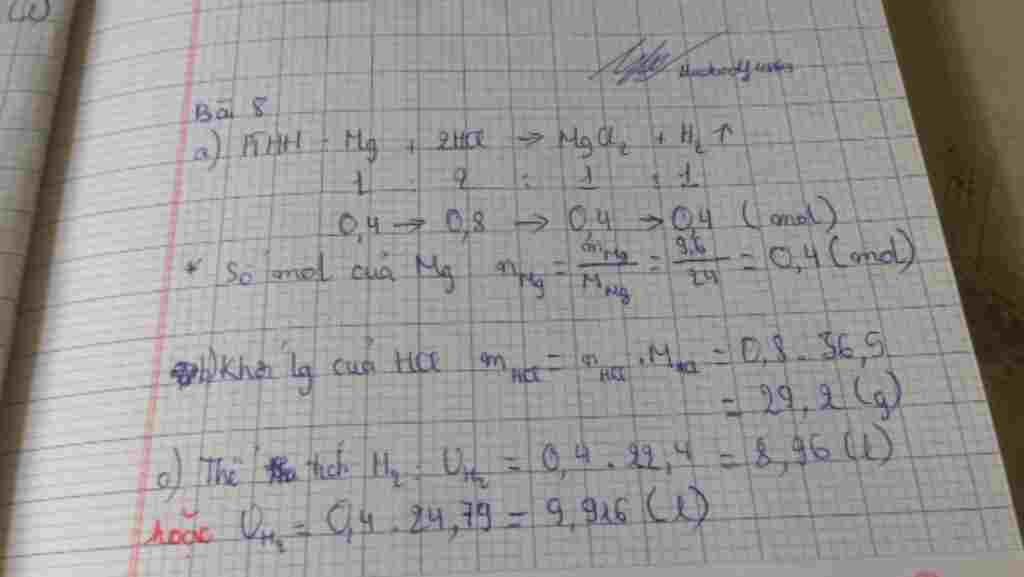 Bài 8
a) PTHH: Mg + 2HCl → MgCl₂ + H₂ ↑
1 : 2 : 1 : 1
0,4 → 0,8 → 0,4 → 0,4 (mol)
* Số mol của Mg n_Mg = m_Mg/M_Mg = 9,6/24 = 0,4 (mol)
b) Khối lg của HCl m_HCl = n_HCl . M_HCl = 0,8 . 36,5
= 29,2 (g)
c) Thể tích H₂ : V_H₂ = 0,4 . 22,4 = 8,96 (l)
hoặc V_H₂ = 0,4 . 24,79 = 9,916 (l)